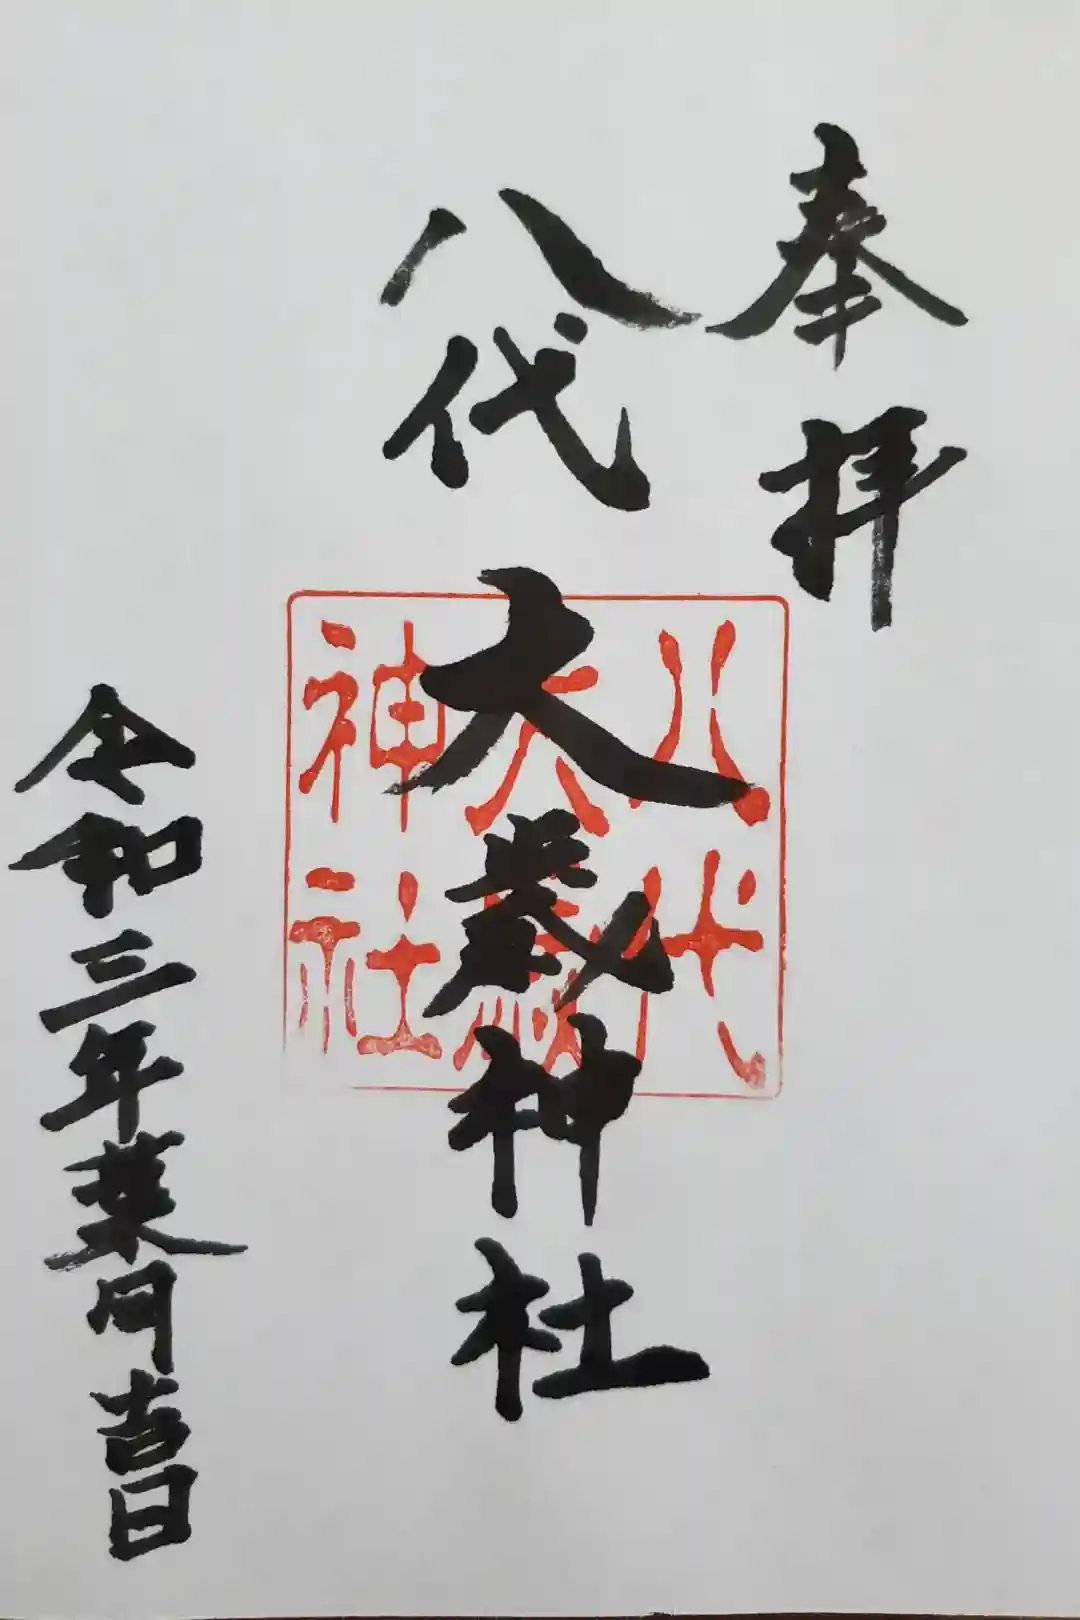 奉拝
八代大歳神社
八代
大歳
神社
令和三年葉月吉日